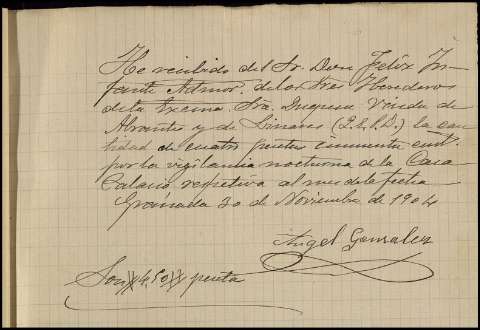 He recibido del Sr. Don Felix In-
fante Admor. de los tres Herederos
de la Excma. Sra. Duquesa Viuda de
Abrantes y de Linares (Q.E.P.D.) la can-
tidad de cuatro pesetas cincuenta cent.
por la vigilancia nocturna de la Casa
Palacio respectiva al mes de la fecha
Granada 30 de Noviembre de 1904
Angel Gonzalez
Son 4,50 peseta